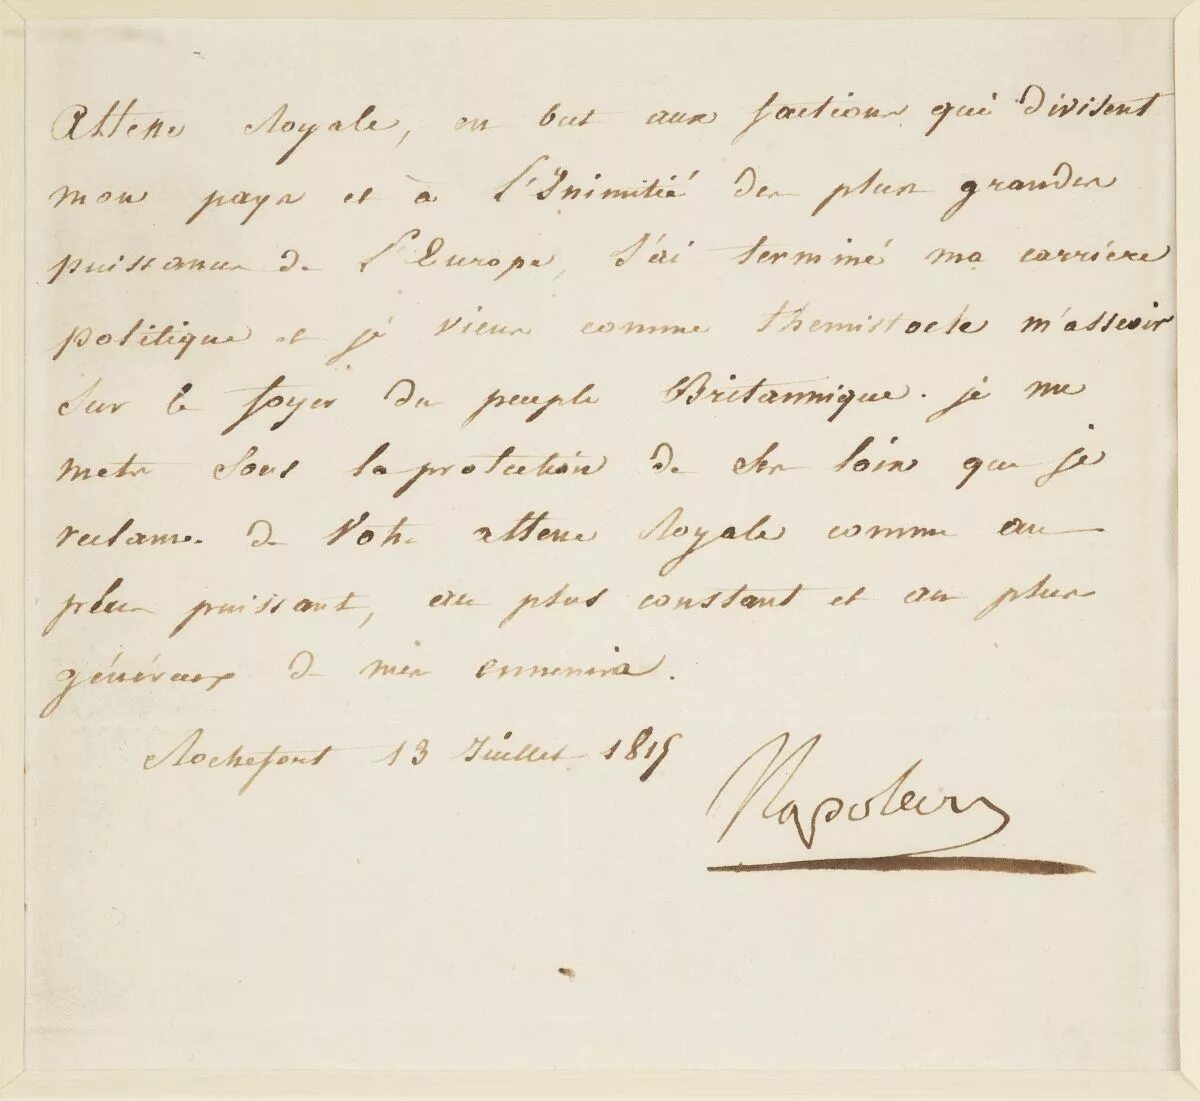 Altesse Royale, en but aux factions qui divisent
mon pays et à l'Inimitié des plus grandes
puissances de l'Europe, J'ai terminé ma carrière
politique et je viens comme themistocle m'asseoir
sur le foyer du peuple Britannique. je me
mets sous la protection de ses loix que je
reclame de Votre altesse Royale comme au
plus puissant, au plus constant et au plus
généreux de mes ennemis.
Rochefort 13 Juillet 1815
Napoleon